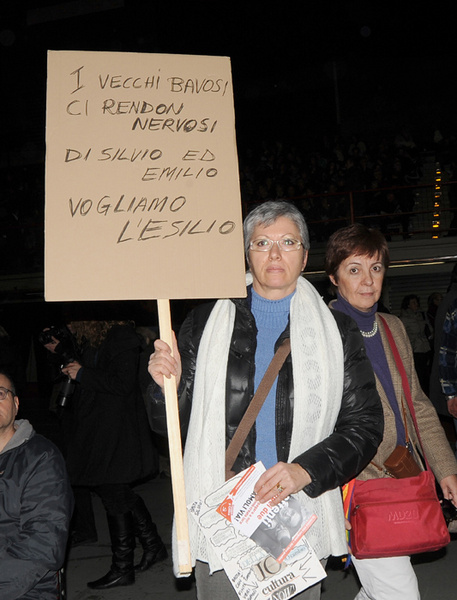 I VECCHI BAVOSI
CI RENDON
NERVOSI
DI SILVIO ED
EMILIO
VOGLIAMO
L'ESILIO
cultura